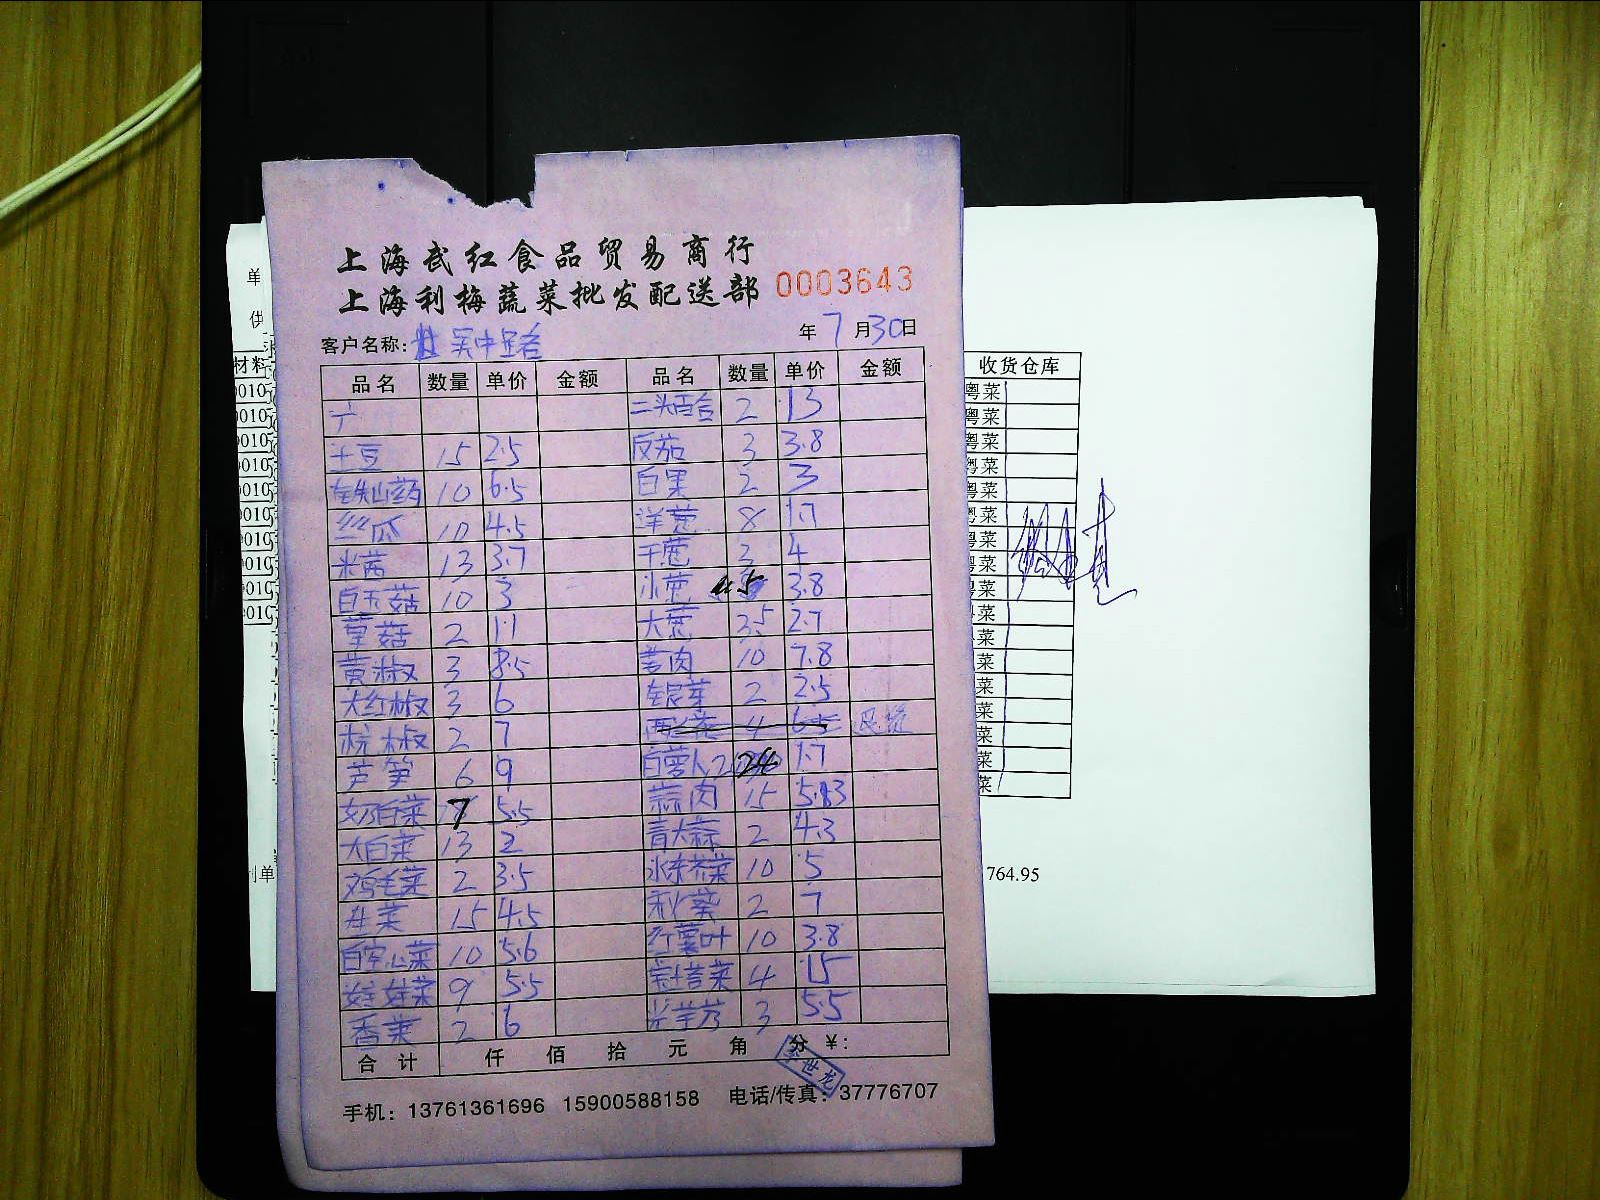 上海武红食品贸易商行
上海利梅蔬菜批发配送部 0003643
客户名称: 吴中路 年 7 月 30 日
品名 数量 单价 金额 品名 数量 单价 金额
二头百合 2 13
土豆 15 2.5 反茄 3 3.8
铁山药 10 6.5 白果 2 3
丝瓜 10 4.5 洋葱 8 1.7
米茜 13 3.7 干葱 3 4
白玉菇 10 3 小葱 3.8
草菇 2 11 大葱 35 2.7
黄椒 3 8.5 姜肉 10 7.8
大红椒 3 6 银芽 2 2.5
杭椒 2 7 西芹 4 6.5 退货
芦笋 6 9 白萝卜 24 1.7
奶白菜 7 5.5 蒜肉 15
大白菜 13 2 青大蒜 2 4.3
鸡毛菜 2 3.5 水东芥菜 10 5
生菜 15 4.5 秋葵 2 7
白空心菜 10 5.6 红薯叶 10 3.8
娃娃菜 9 5.5 菜 4 15
香菜 2 6 芋艿 3 5.5
合计 仟 佰 拾 元 角 分 ¥:
世龙
手机: 13761361696 15900588158 电话/传真: 37776707
单
供
材料
收货仓库
粤菜
粤菜
粤菜
粤菜
粤菜
粤菜
粤菜
粤菜
粤菜
菜
菜
菜
菜
菜
菜
菜
菜
单
764.95